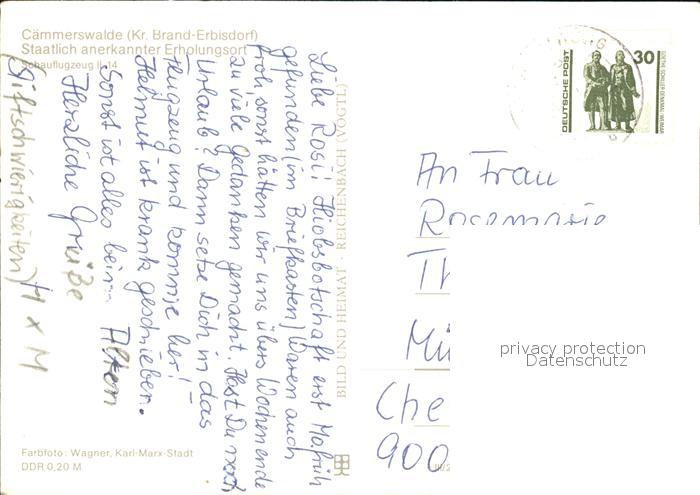 Cämmerswalde (Kr. Brand-Erbisdorf)
Staatlich anerkannter Erholungsort
Schauflugzeug IL 14
Liebe Rosi! Hiobsbotschaft erst Mo früh
gefunden (im Briefkasten) Waren auch
froh sonst hätten wir uns übers Wochenende
zu viele Gedanken gemacht. Hast Du noch
Urlaub? Dann setze Dich in das
Flugzeug und komme her!
Helmut ist krank geschrieben.
Sonst ist alles beim Alten
Herzliche Grüße
(Stiftschwierigkeiten) H x M
BILD UND HEIMAT · REICHENBACH (VOGTL.)
Farbfoto: Wagner, Karl-Marx-Stadt
DDR 0,20 M
DEUTSCHE POST
30
GOETHE-SCHILLER-DENKMAL WEIMAR
An Frau
Rosemarie
Th
Mü
Che
900
privacy protection
Datenschutz